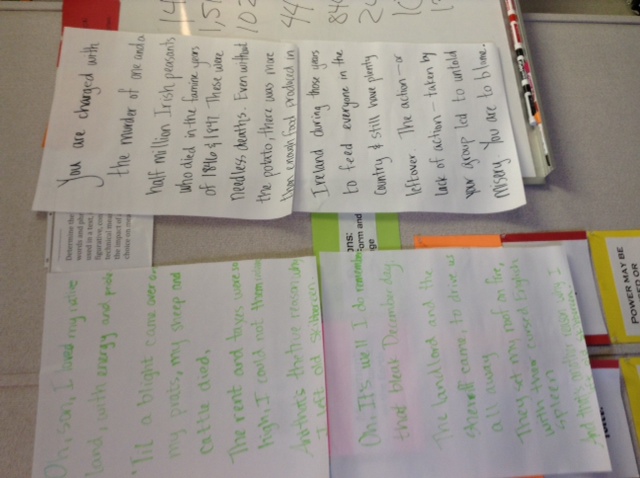 You are charged with
the murder of one and a
half million Irish peasants
who died in the famine years
of 1846 & 1847. These were
needless deaths. Even without
the potato, there was more
than enough food produced in
Ireland during those years
to feed everyone in the
country & still have plenty
leftover. The action - or
lack of action - taken by
your group led to untold
misery. You are to blame.
Oh, son, I loved my native
land, with energy and pride
'Til a blight came over
my prats, my sheep and
cattle died,
The rent and taxes were so
high, I could not them
And that's the true reason why
I left old Skibbereen.
Oh. It's well I do remember
that bleak December day.
The landlord and the
sheriff came, to drive us
all away
They set my roof on fire,
with their cursed English
spleen
And that's another reason why I
Determine the
words and
used in a text,
figurative,
technical
the impact of
choice on
form and
POWER MAY BE